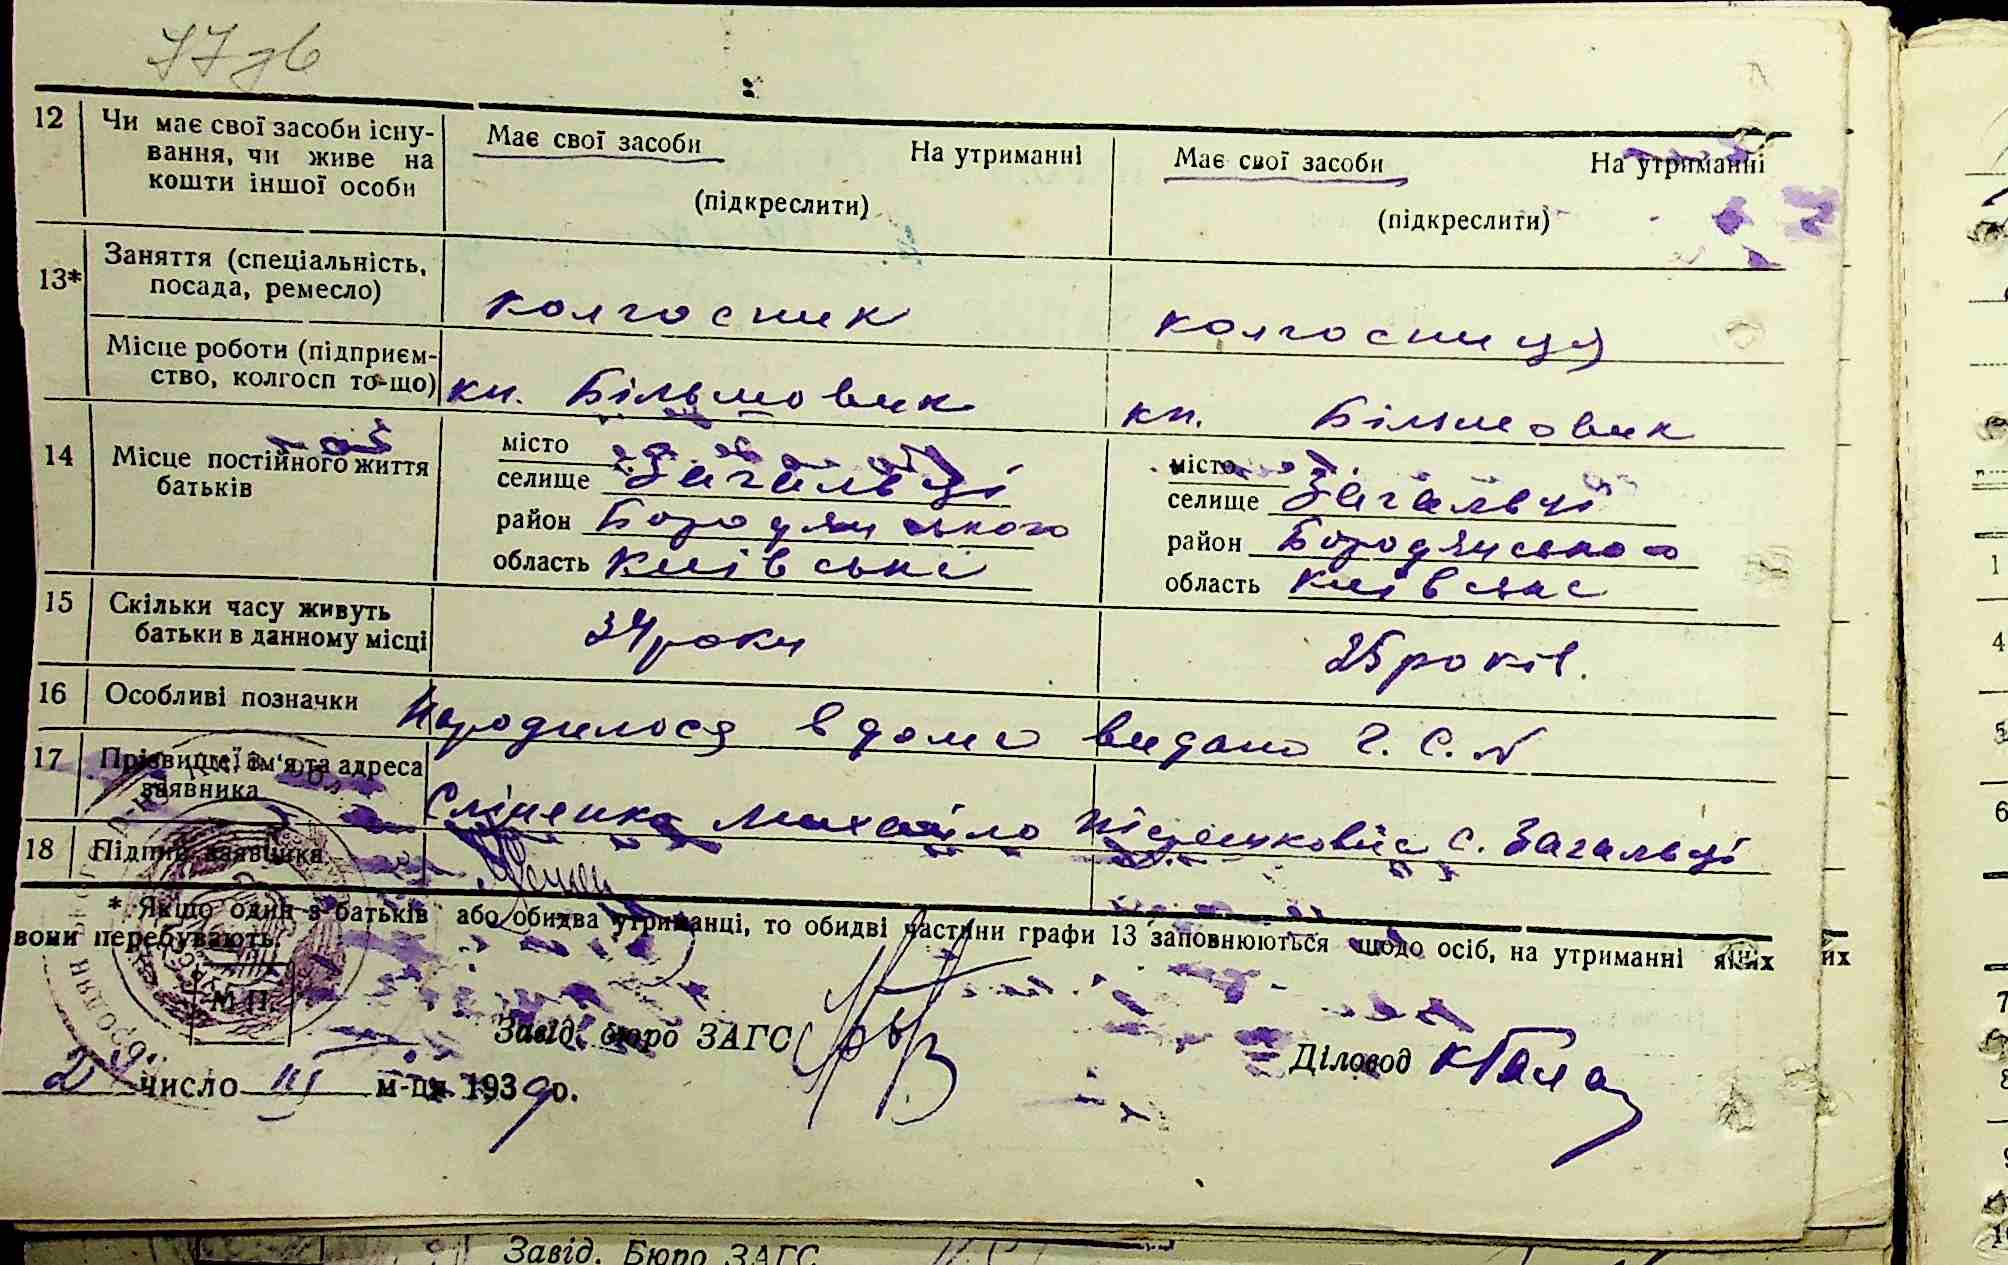 77 зв
12 Чи має свої засоби існу-
вання, чи живе на
кошти іншої особи
Має свої засоби На утриманні
(підкреслити)
Має свої засоби На утриманні
(підкреслити)
13* Заняття (спеціальність,
посада, ремесло)
колгосник
колгосниця
Місце роботи (підприєм-
ство, колгосп то-що)
кп. Більшовик
кп. Більшовик
14 Місце постійного життя
батьків
місто
селище Загальці
район Бородянського
область Київські
місто
селище Загальці
район Бородянського
область
15 Скільки часу живуть
батьки в данному місці
34 роки
25 років.
16 Особливі позначки
Народилося в дома видано
17 Прізвище, ім'я та адреса
заявника
Сліпенко Михайло с. Загальці
18 Підпис заявника
* Якщо один з батьків або обидва утриманці, то обидві частини графи 13 заповнюються щодо осіб, на утриманні яких
вони перебувають.
М.П.
Завід. бюро ЗАГС
Діловод
2 число III м-ця 1939 р.
их
Завід. Бюро ЗАГС